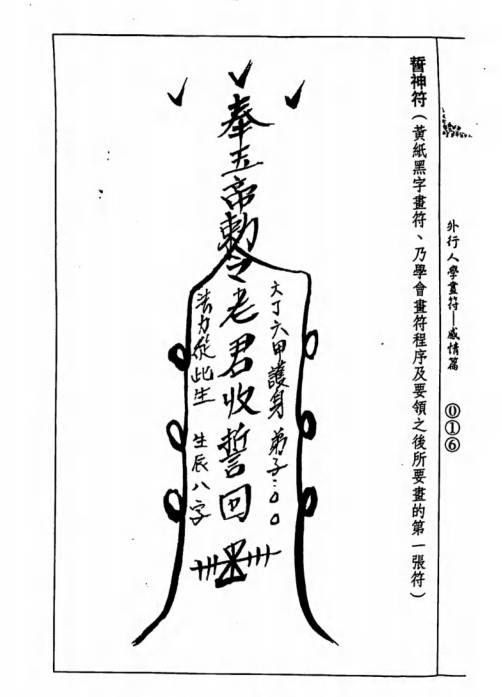 外行人學畫符—感情篇 ⓪①⑥
誓神符（黃紙黑字畫符、乃學會畫符程序及要領之後所要畫的第一張符）
奉五帝勅令老君收誓回
六丁六甲護身 弟子：○○
法力從此生 生辰八字